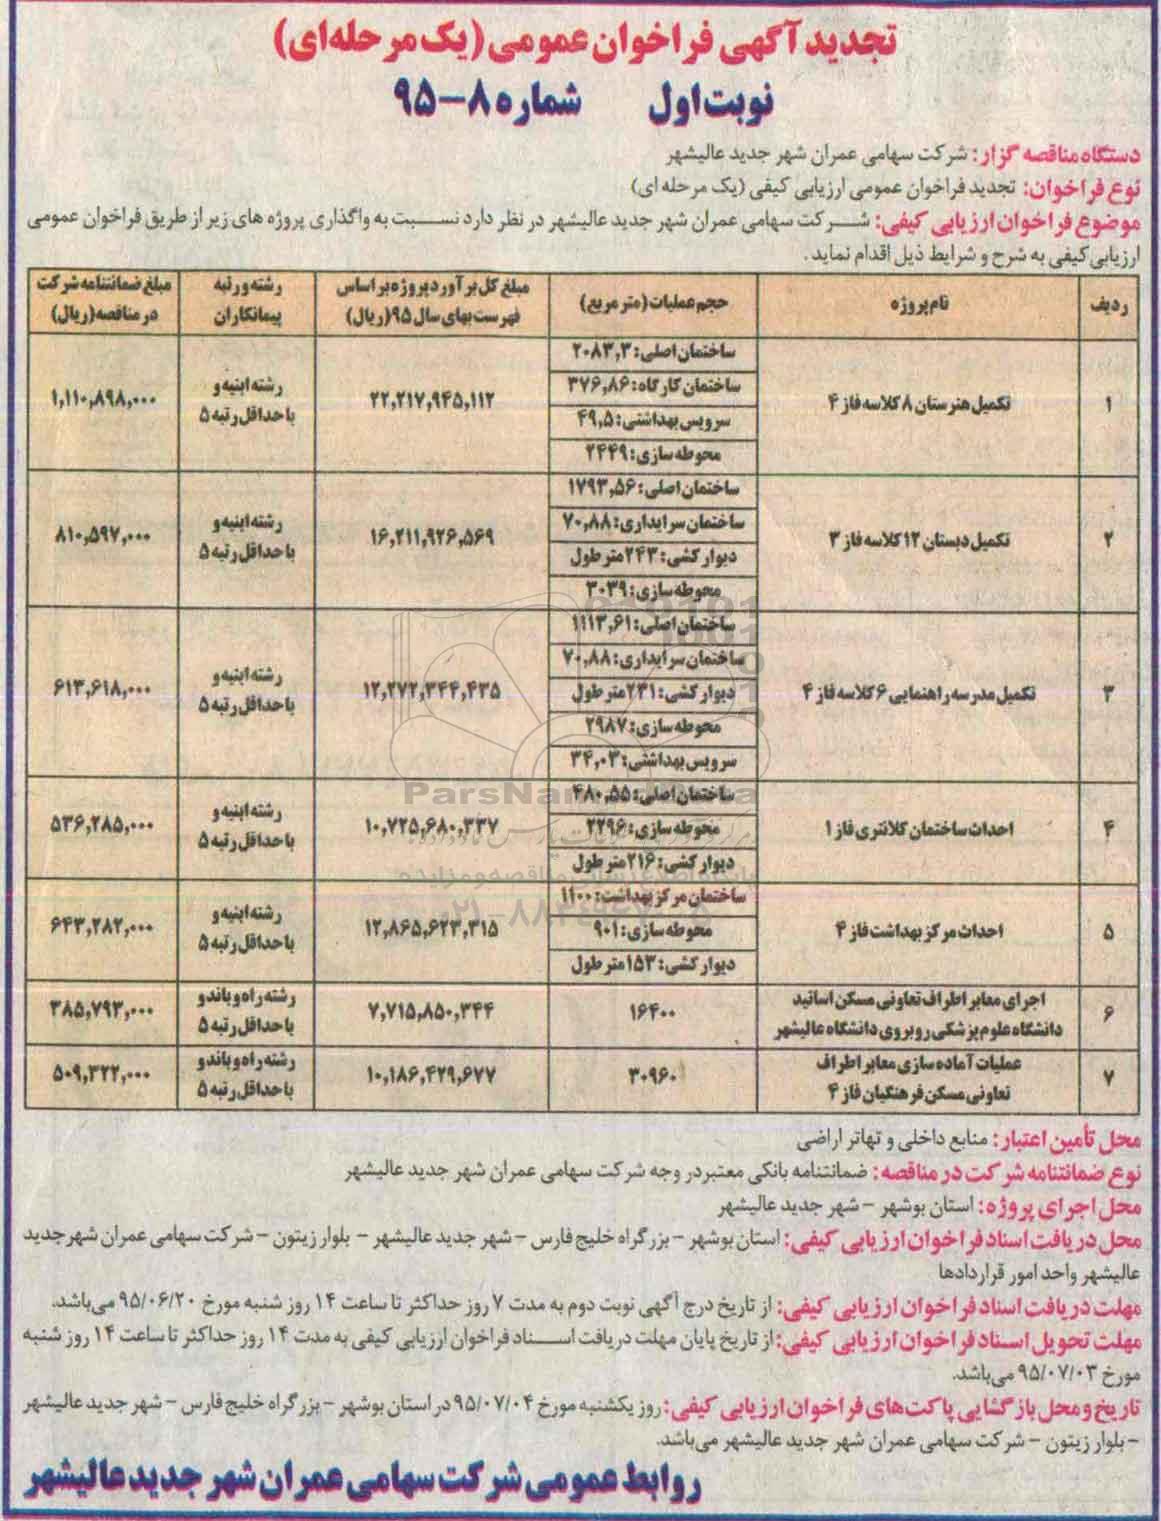 تجدید آگهی فراخوان عمومی (یک مرحله‌ای)
نوبت اول شماره ۸-۹۵
دستگاه مناقصه گزار: شرکت سهامی عمران شهر جدید عالیشهر
نوع فراخوان: تجدید فراخوان عمومی ارزیابی کیفی (یک مرحله ای)
موضوع فراخوان ارزیابی کیفی: شرکت سهامی عمران شهر جدید عالیشهر در نظر دارد نسبت به واگذاری پروژه های زیر از طریق فراخوان عمومی
ارزیابی کیفی به شرح و شرایط ذیل اقدام نماید.
ردیف نام پروژه حجم عملیات (متر مربع) مبلغ کل برآورد پروژه براساس فهرست بهای سال ۹۵ (ریال) رشته و رتبه پیمانکاران مبلغ ضمانتنامه شرکت در مناقصه (ریال)
۱ تکمیل هنرستان ۸ کلاسه فاز ۴
ساختمان اصلی: ۲۰۸۳,۳
ساختمان کارگاه: ۳۷۶,۸۶
سرویس بهداشتی: ۴۹,۵
محوطه سازی: ۲۴۴۹
۲۲,۲۱۷,۹۴۵,۱۱۲
رشته ابنیه و
با حداقل رتبه ۵
۱,۱۱۰,۸۹۸,۰۰۰
۲ تکمیل دبستان ۱۲ کلاسه فاز ۳
ساختمان اصلی: ۱۷۹۳,۵۶
ساختمان سرایداری: ۷۰,۸۸
دیوار کشی: ۲۴۳ متر طول
محوطه سازی: ۳۰۳۹
۱۶,۲۱۱,۹۲۶,۵۶۹
رشته ابنیه و
با حداقل رتبه ۵
۸۱۰,۵۹۷,۰۰۰
۳ تکمیل مدرسه راهنمایی ۶ کلاسه فاز ۴
ساختمان اصلی: ۱۱۱۳,۶۱
ساختمان سرایداری: ۷۰,۸۸
دیوار کشی: ۲۳۱ متر طول
محوطه سازی: ۲۹۸۷
سرویس بهداشتی: ۳۴,۰۳
۱۲,۲۷۲,۳۴۴,۴۳۵
رشته ابنیه و
با حداقل رتبه ۵
۶۱۳,۶۱۸,۰۰۰
۴ احداث ساختمان کلانتری فاز ۱
ساختمان اصلی: ۴۸۰,۵۵
محوطه سازی: ۲۲۹۶
دیوار کشی: ۲۱۶ متر طول
۱۰,۷۲۵,۶۸۰,۳۳۷
رشته ابنیه و
با حداقل رتبه ۵
۵۳۶,۲۸۵,۰۰۰
۵ احداث مرکز بهداشت فاز ۴
ساختمان مرکز بهداشت: ۱۱۰۰
محوطه سازی: ۹۰۱
دیوار کشی: ۱۵۳ متر طول
۱۲,۸۶۵,۶۲۳,۳۱۵
رشته ابنیه و
با حداقل رتبه ۵
۶۴۳,۲۸۲,۰۰۰
۶ اجرای معابر اطراف تعاونی مسکن اساتید
دانشگاه علوم پزشکی روبروی دانشگاه عالیشهر
۱۶۴۰۰
۷,۷۱۵,۸۵۰,۳۴۴
رشته راه و باند و
با حداقل رتبه ۵
۳۸۵,۷۹۳,۰۰۰
۷ عملیات آماده سازی معابر اطراف
تعاونی مسکن فرهنگیان فاز ۴
۳۰۹۶۰
۱۰,۱۸۶,۴۲۹,۶۷۷
رشته راه و باند و
با حداقل رتبه ۵
۵۰۹,۳۲۲,۰۰۰
محل تأمین اعتبار: منابع داخلی و تهاتر اراضی
نوع ضمانتنامه شرکت در مناقصه: ضمانتنامه بانکی معتبر در وجه شرکت سهامی عمران شهر جدید عالیشهر
محل اجرای پروژه: استان بوشهر - شهر جدید عالیشهر
محل دریافت اسناد فراخوان ارزیابی کیفی: استان بوشهر - بزرگراه خلیج فارس - شهر جدید عالیشهر - بلوار زیتون - شرکت سهامی عمران شهر جدید
عالیشهر واحد امور قراردادها
مهلت دریافت اسناد فراخوان ارزیابی کیفی: از تاریخ درج آگهی نوبت دوم به مدت ۷ روز حداکثر تا ساعت ۱۴ روز شنبه مورخ ۹۵/۰۶/۲۰ می‌باشد.
مهلت تحویل اسناد فراخوان ارزیابی کیفی: از تاریخ پایان مهلت دریافت اسناد فراخوان ارزیابی کیفی به مدت ۱۴ روز حداکثر تا ساعت ۱۴ روز شنبه
مورخ ۹۵/۰۷/۰۳ می‌باشد.
تاریخ و محل بازگشایی پاکت‌های فراخوان ارزیابی کیفی: روز یکشنبه مورخ ۹۵/۰۷/۰۴ در استان بوشهر - بزرگراه خلیج فارس - شهر جدید عالیشهر
- بلوار زیتون - شرکت سهامی عمران شهر جدید عالیشهر می‌باشد.
روابط عمومی شرکت سهامی عمران شهر جدید عالیشهر